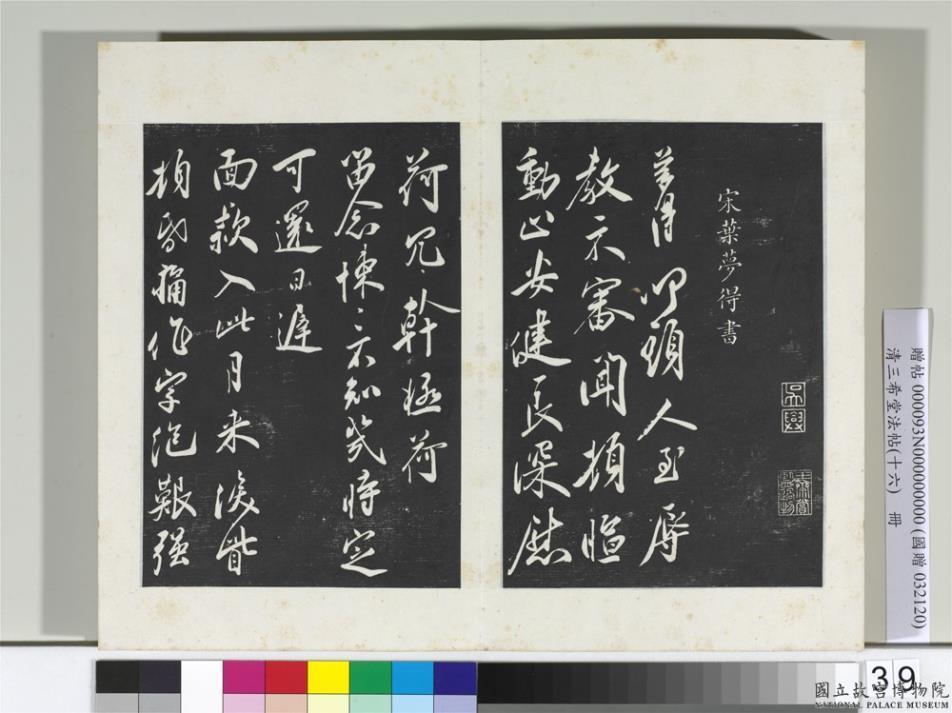 宋葉夢得書
夢得 叩頭 人至辱
教示審聞頓
動止安健良深慰
荷 冗幹極荷
留念悚悚不知幾時定
可還日遲
面款入此月来
頓昏痛作字 艱强
贈帖 000093N000000000 (國贈 032120)
清三希堂法帖(十六) 冊
39
國立故宮博物院
NATIONAL PALACE MUSEUM